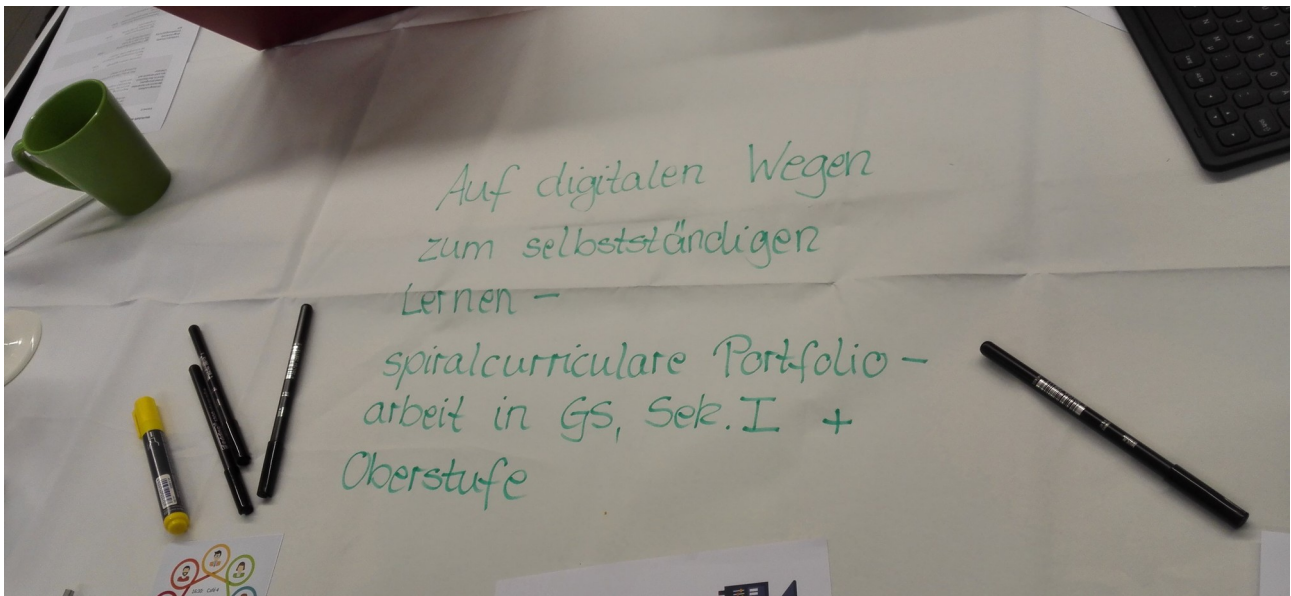 Auf digitalen Wegen
zum selbstständigen
Lernen –
spiralcurriculare Portfolio –
arbeit in GS, Sek. I +
Oberstufe